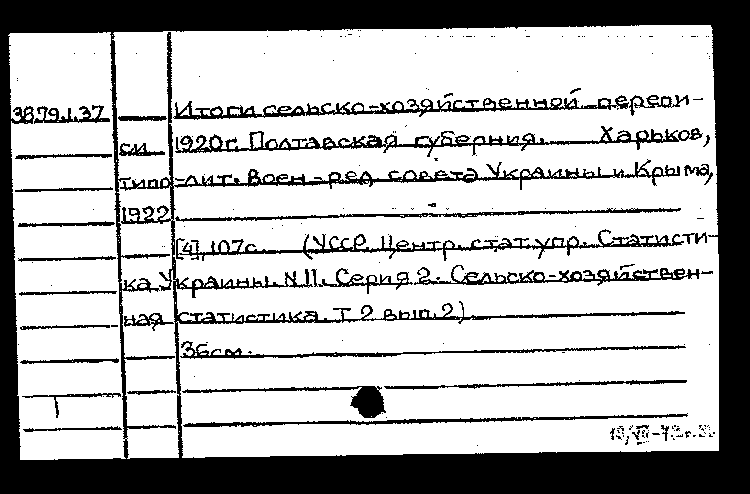 38.79.1.37 Итоги сельско-хозяйственной перепи-
си 1920г. Полтавская губерния. Харьков,
типо-лит. Воен-ред. совета Украины и Крыма,
1922
[4], 107с. (УССР. Центр. стат. упр. Статисти-
ка Украины. N 11. Серия 2. Сельско-хозяйствен-
ная статистика. Т 2 вып. 2)
36см.
1